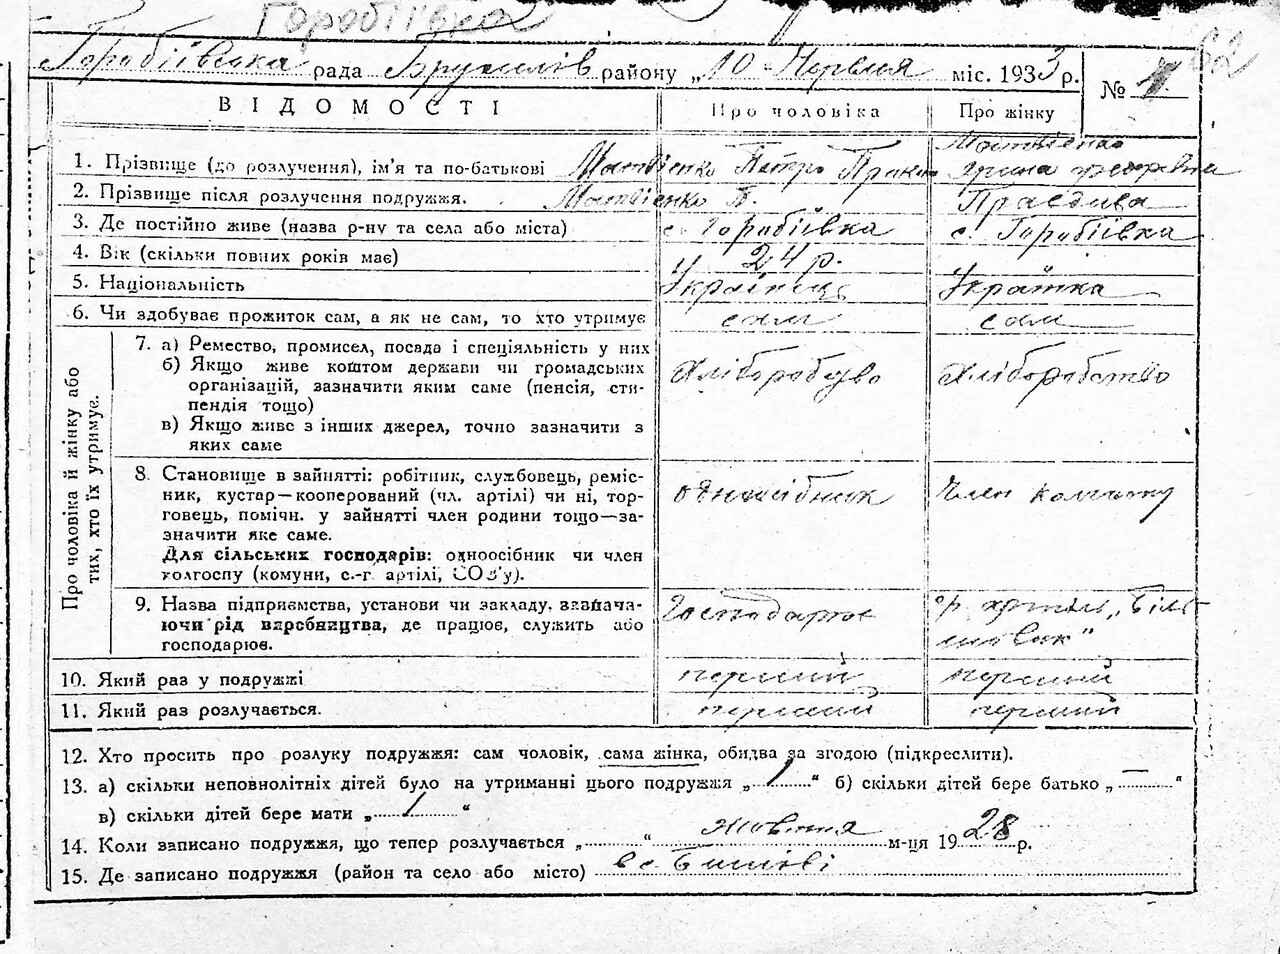 Горобіївка
62
Горобіївська рада Брусилів району „10 Червня міс. 1933 р.
№ 1
ВІДОМОСТІ Про чоловіка Про жінку
1. Прізвище (до розлучення), ім'я та по-батькові Матвієнко Петро Матвієнко Ярина Федорівна
2. Прізвище після розлучення подружжя. Матвієнко П. Правдива
3. Де постійно живе (назва р-ну та села або міста) с. Горобіївка с. Горобіївка
4. Вік (скільки повних років має) 24 р.
5. Національність Українець Українка
6. Чи здобуває прожиток сам, а як не сам, то хто утримує сам сам
Про чоловіка й жінку або
тих, хто їх утримує.
7. а) Ремество, промисел, посада і спеціяльність у них
б) Якщо живе коштом держави чи громадських
організацій, зазначити яким саме (пенсія, сти-
пендія тощо)
в) Якщо живе з інших джерел, точно зазначити з
яких саме
Хліборобство Хліборобство
8. Становище в зайнятті: робітник, службовець, реміс-
ник, кустар—кооперований (чл. артілі) чи ні, тор-
говець, помічн. у зайнятті член родини тощо—за-
значити яке саме.
Для сільських господарів: одноосібник чи член
колгоспу (комуни, с.-г. артілі, СОЗ'у).
одноосібник Член колгоспу
9. Назва підприємства, установи чи закладу, зазнача-
ючи рід виробництва, де працює, служить або
господарює.
Господарює артіль „Біль-
шовик"
10. Який раз у подружжі перший перший
11. Який раз розлучається. перший перший
12. Хто просить про розлуку подружжя: сам чоловік, сама жінка, обидва за згодою (підкреслити).
13. а) скільки неповнолітніх дітей було на утриманні цього подружжя „ 1 “ б) скільки дітей бере батько „ — “
в) скільки дітей бере мати „ 1 “
14. Коли записано подружжя, що тепер розлучається „ “ жовтня м-ця 1928 р.
15. Де записано подружжя (район та село або місто) в с.